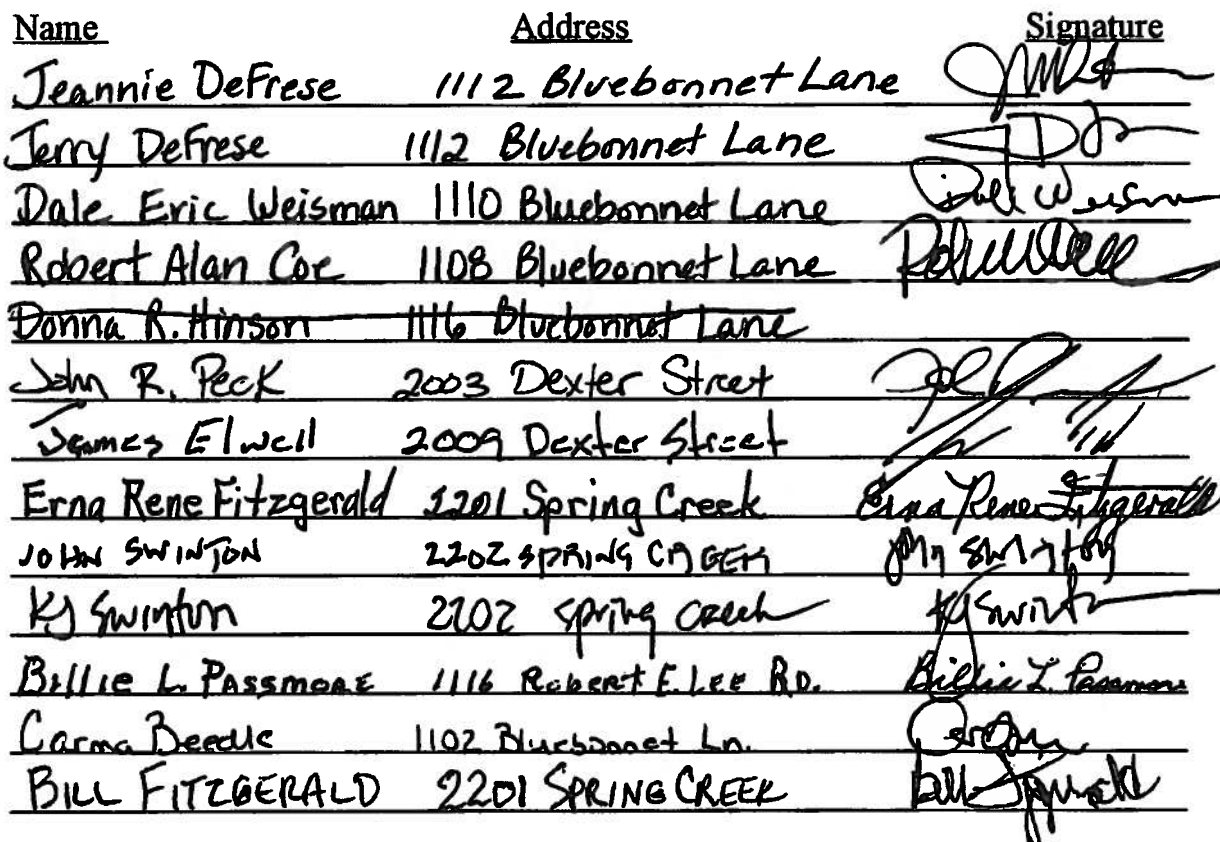 Name Address Signature
Jeannie DeFrese 1112 Bluebonnet Lane
Jerry DeFrese 1112 Bluebonnet Lane
Dale Eric Weisman 1110 Bluebonnet Lane Dale Weisman
Robert Alan Coe 1108 Bluebonnet Lane
Donna R. Hinson 1116 Bluebonnet Lane
John R. Peck 2003 Dexter Street
James Elwell 2009 Dexter Street
Erna Rene Fitzgerald 2201 Spring Creek Erna Rene Fitzgerald
JOHN SWINTON 2202 SPRING CREEK John Swinton
KJ Swinton 2202 Spring Creek KJ Swinton
Billie L. PASSMORE 1116 Robert E. LEE RD. Billie L. Passmore
Carma Beedle 1102 Bluebonnet Ln.
BILL FITZGERALD 2201 SPRING CREEK Bill Fitzgerald